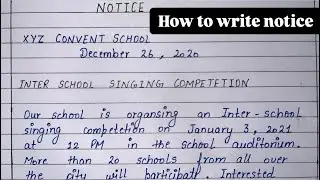 NOTICE
How to write notice
XYZ CONVENT SCHOOL
December 26, 2020
INTER SCHOOL SINGING COMPETETION
Our school is organsing an Inter-school
singing competetion on January 3, 2021
at 12 PM in the school auditorium.
More than 20 schools from all over
the city will participate. Interested